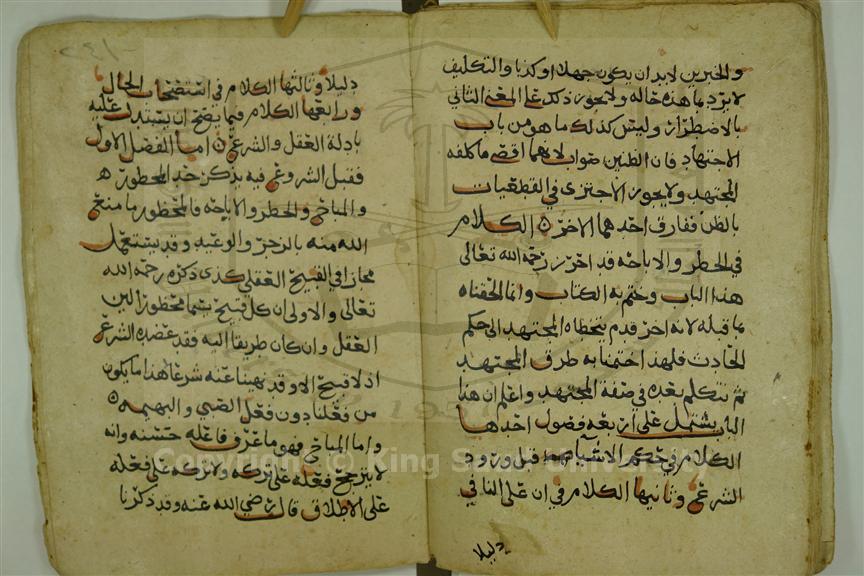 والخبرين لابد ان يكون جهلا او كذبا والتكليف
لا يرد بما هذه حاله ولا يجوز ذلك على المعنى الثاني
بالاضطرار وليس كذلك ما هو من باب
الاجتهاد فان الظنين صواب لانهما اقصى ما كلفه
المجتهد ولا يجوز الاجتزى في القطعيات
بالظن ففارق احدهما الاخر الكلام
في الحظر والاباحه قد اخر رحمه الله تعالى
هذا الباب وختم به الكتاب وانما الحقناه
ما قبله لانه اخر قدم يتخطاه المجتهد الى حكم
الحادث فلهذا اختمنا به طرق المجتهد
ثم نتكلم بعده في صفة المجتهد واعلم ان هذا
الباب يشتمل على اربعه فصول احدها
الكلام في حكم الاشيا قبل ورود
الشرع وثانيها الكلام في ان على النافي
دليلا
دليلا وثالثها الكلام في استصحاب الحال
ورابعها الكلام فيما يصح ان يستدل عليه
بادلة العقل والشرع اما الفصل الاول
فقبل الشروع فيه نذكر حد المحظور
والمباح والحظر والاباحه فالمحظور ما منع
الله منه بالزجر والوعيد وقد يستعمل
مجازا في القبيح العقلي كذى ذكره رحمه الله
تعالى والاولى ان كل قبيح يسما محظورا لان
العقل وان كان طريقا اليه فقد عضده الشرع
اذ لا قبيح الا وقد نهينا عنه شرعا هذا ما يكون
من فعلنا دون فعل الصبي والبهيمه
واما المباح فهو ما عرف فاعله حسنه وانه
لا يترجح فعله على تركه ولا تركه على فعله
على الاطلاق قال رضي الله عنه وقد ذكرنا
Copyright © King Saud University
1957